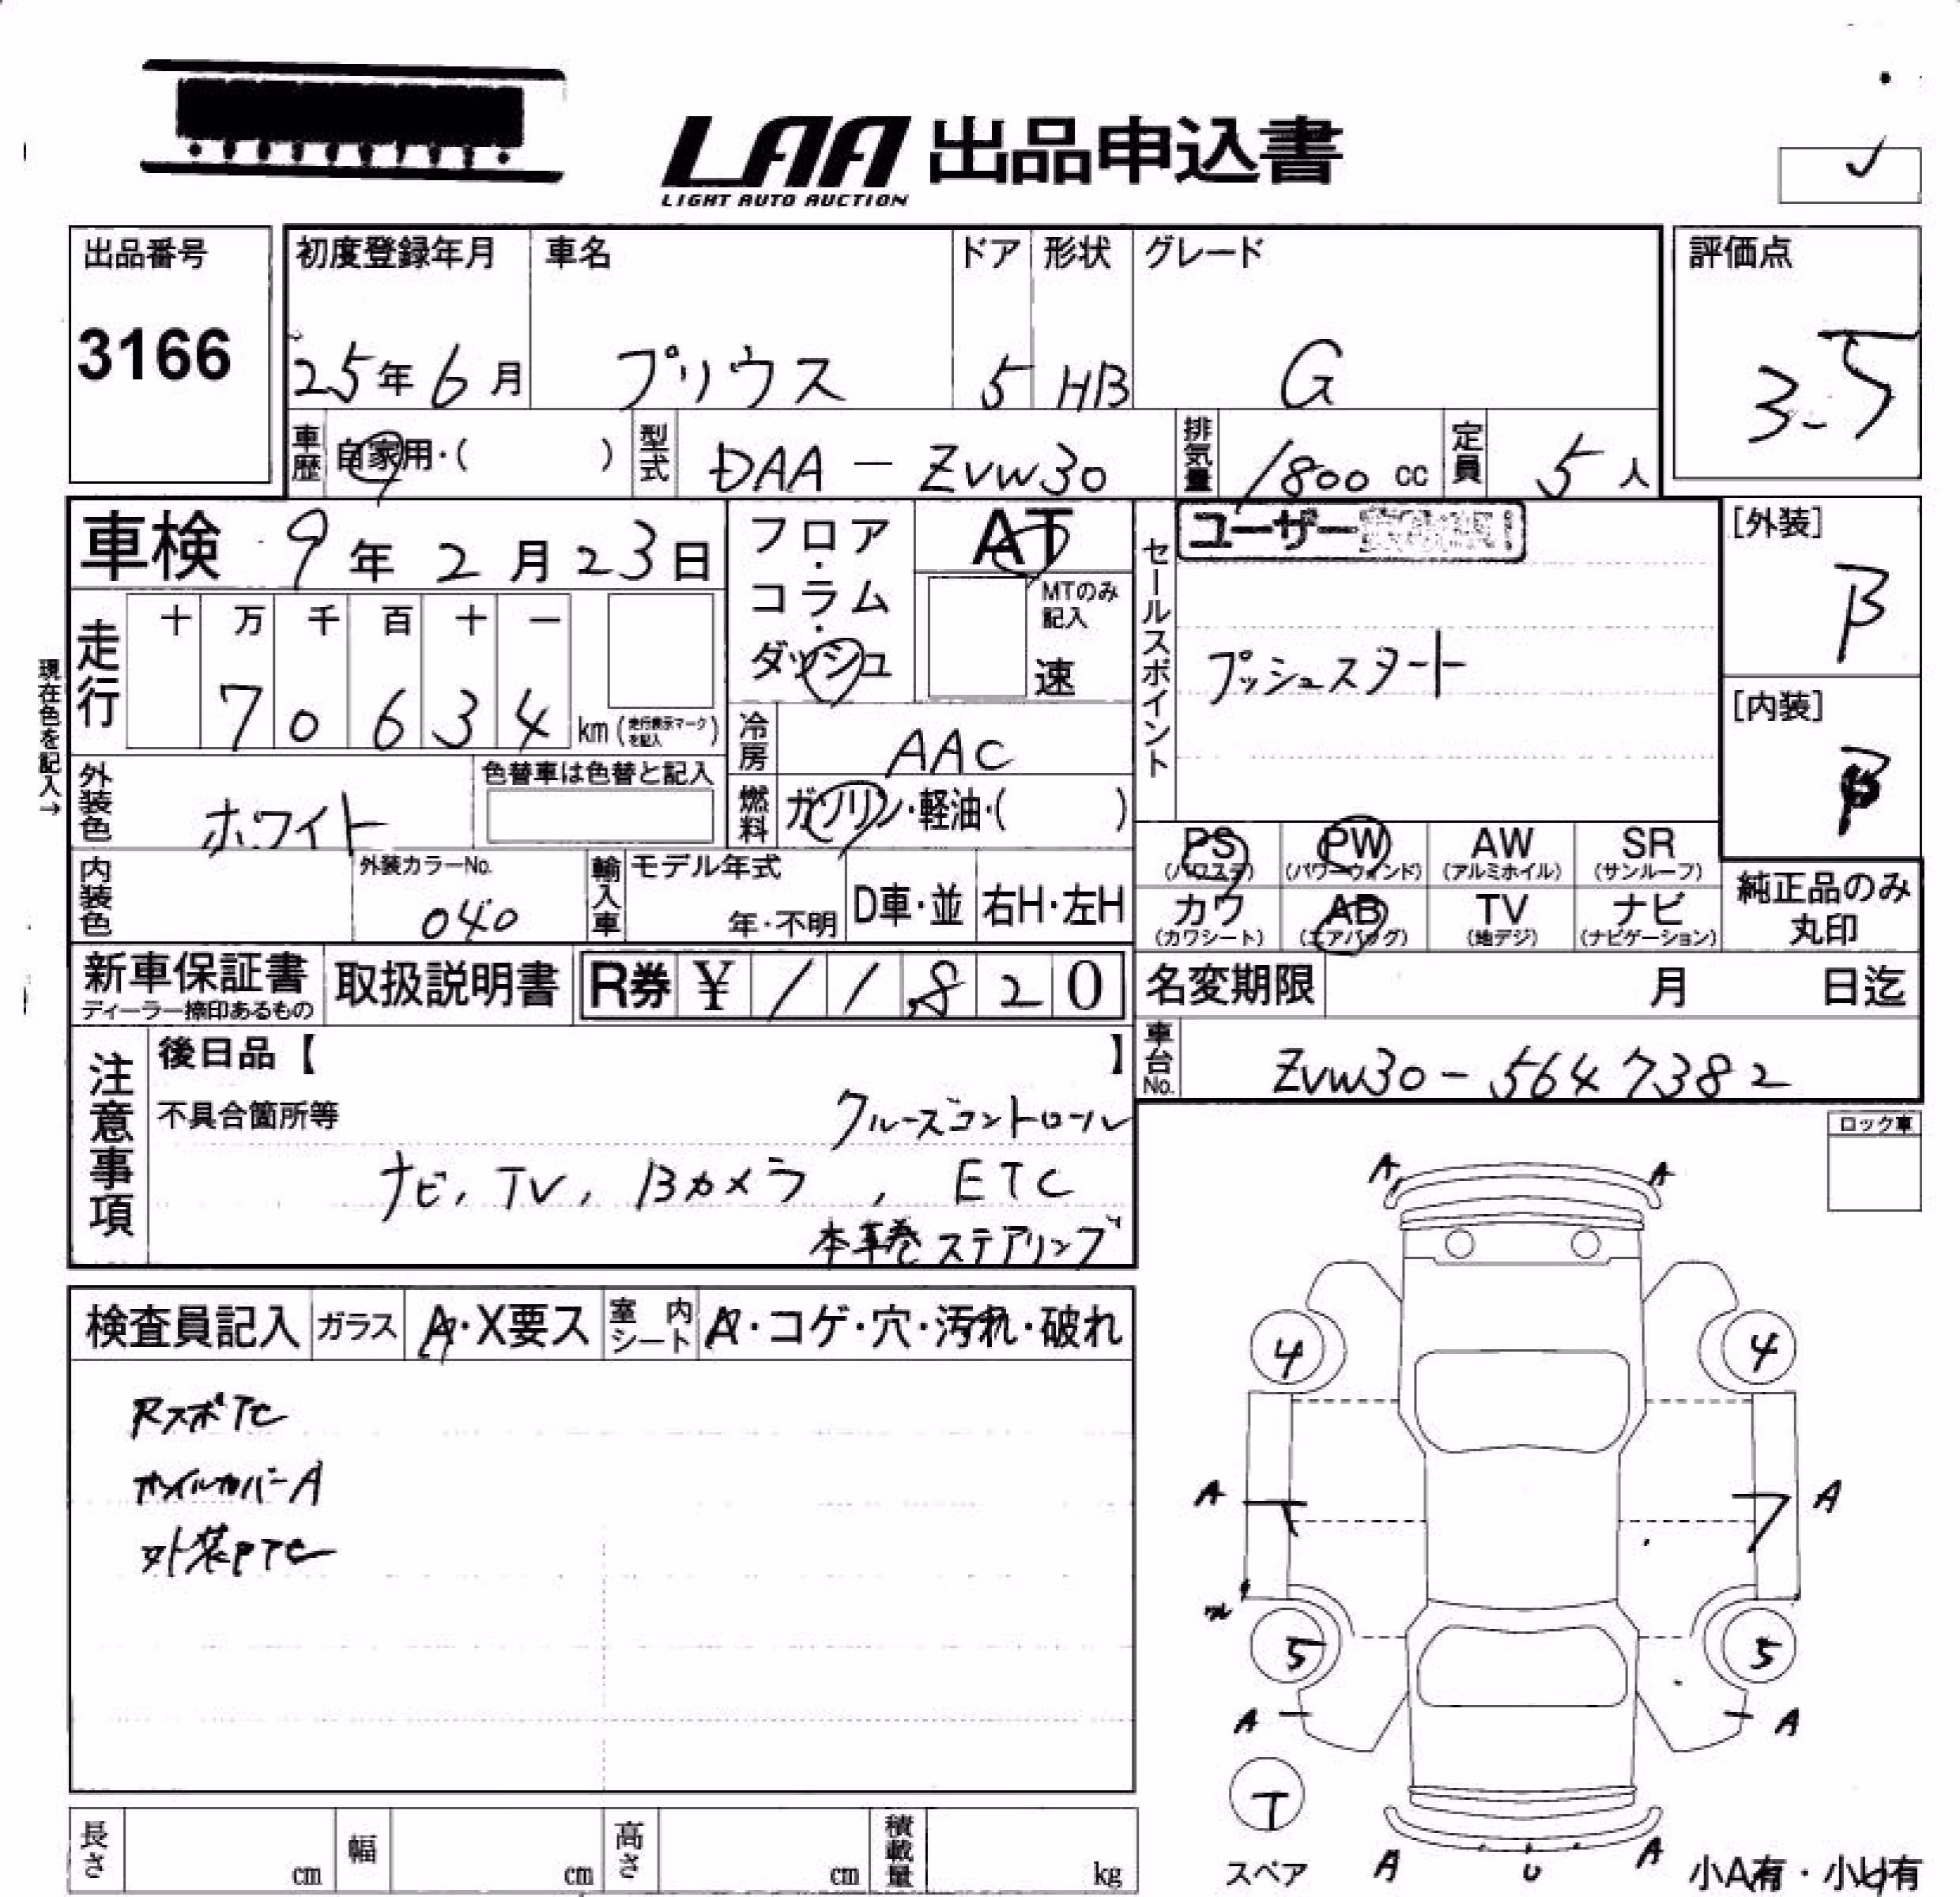 LAA 出品申込書
LIGHT AUTO AUCTION
出品番号
3166
初度登録年月 車名 ドア 形状 グレード
25年6月 プリウス 5 HB G
評価点
3.5
車歴 自家用・( ) 型式 DAA-ZVW30 排気量 1800 cc 定員 5人
車検 9年2月23日
フロア・コラム・ダッシュ
AT
MTのみ記入
速
セールスポイント
ユーザー
プッシュスタート
[外装]
B
[内装]
B
現在色を記入→
走行 十 万 千 百 十 一
70634 km (走行表示マークを記入)
冷房 AAC
外装色 ホワイト 色替車は色替と記入
燃料 ガソリン・軽油・( )
PS PW AW SR
(パワステ) (パワーウィンド) (アルミホイル) (サンルーフ)
カワ AB TV ナビ
(カワシート) (エアバッグ) (地デジ) (ナビゲーション)
純正品のみ
丸印
内装色 外装カラーNo. 040 輸入車 モデル年式 年・不明 D車・並 右H・左H
新車保証書
ディーラー捺印あるもの
取扱説明書
R券 ¥ 11,820
名変期限 月 日迄
車台No. ZVW30-5647382
注意事項
後日品【 】
不具合箇所等
クルーズコントロール
ナビ, TV, Bカメラ, ETC
本革巻ステアリング
ロック車
検査員記入 ガラス A・X要ス 室内シート A・コゲ・穴・汚れ・破れ
RスポTC
ホイルカバーA
外装PTC
A A
4 4
A A
5 5
A A
T
スペア
A U A
小A有・小U有
長さ cm 幅 cm 高さ cm 積載量 kg